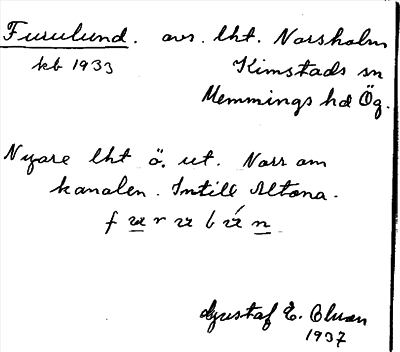 Furulund. avs. lht. Norsholm
kb 1933 Kimstads sn
Memmings hd Ög.
Nyare lht ö. ut. Norr om
kanalen. Intill Altona.
Gustaf E.
1937